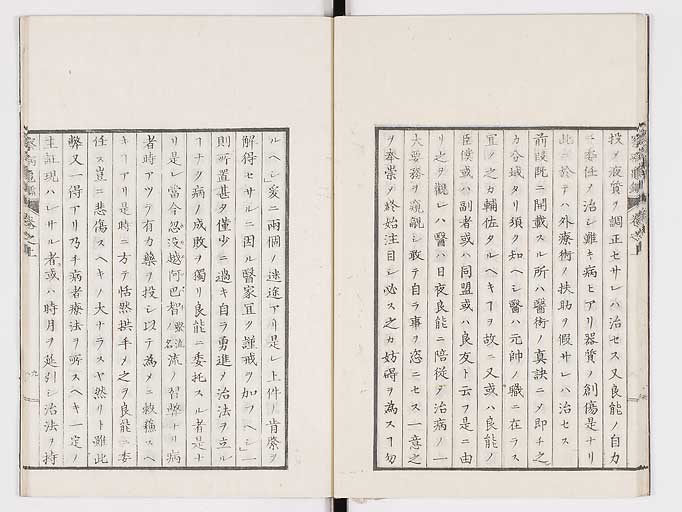 投メ液質ヲ調正セサレハ治セス又良能ノ自力
ニ委任ノ治シ難キ病ヒアリ器質ノ創傷是ナリ
此ニ於テハ外療術ノ扶助ヲ假サレハ治セス
前段既ニ開載スル所ハ醫術ノ真訣ニメ即チ之
カ分域タリ須ク知ヘシ醫ハ元帥ノ職ニ在ラス
宜ク之カ輔佐タルヘキヿヲ故ニ又或ハ良能ノ
臣僕或ハ副者或ハ同盟或ハ良友ト云フ是ニ由
リ之ヲ觀レハ醫ハ日夜良能ニ陪従ノ治病ノ一
大要務ヲ窺覦シ敢テ自ラ事ヲ恣ニセス一意之
ヲ奉崇ノ終始注目シ必ス之カ妨碍ヲ為スヿ勿
ルヘシ爰ニ兩個ノ迷途アリ是レ上件ノ肯綮ヲ
解得セサルニ因ル醫家宜ク謹戒ヲ加フヘシ一
則所置甚タ僅少ニ過キ自ラ勇進ノ治法ヲ立ル
ヿナク病ノ成敗ヲ獨リ良能ニ委托スル者是ナ
リ是レ當今忽没越阿巴智醫流ノ名流ノ習弊ナリ病
者時アツテ有力藥ヲ投シ以テ為メニ救＿スヘ
キヿアリ是時ニ方テ恬然拱手メ之ヲ良能ニ委
任ス豈ニ悲傷スヘキノ大ナラスヤ然リト雖此
弊又一得アリ乃チ病者療法ヲ所スヘキ一定ノ
主証現ハレサル者或ハ時月ヲ延引シ治法ヲ持
卷之上
九